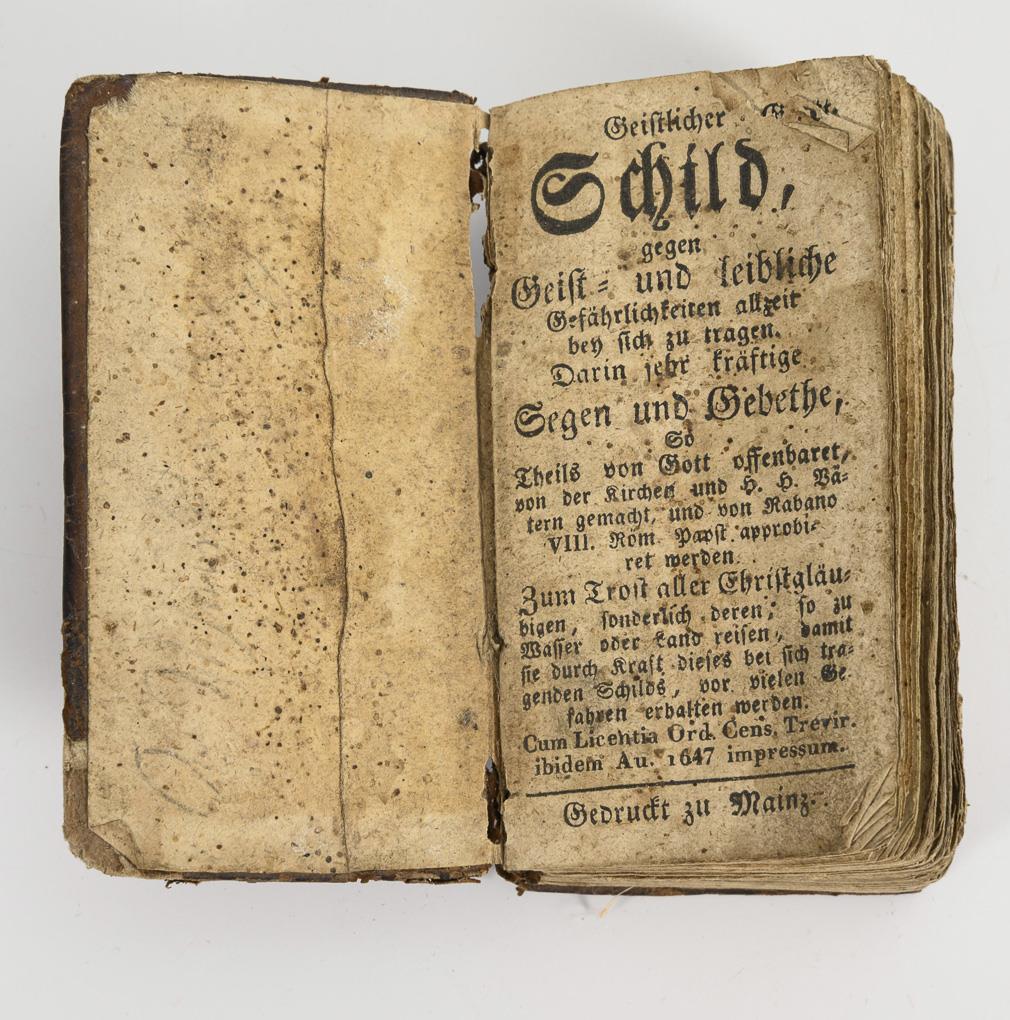 Geistlicher
Schild,
gegen
Geist- und leibliche
Gefährlichkeiten allzeit
bey sich zu tragen.
Darin sehr kräftige
Segen und Gebethe,
So
Theils von Gott offenbaret,
von der Kirchen und H. H. Vä-
tern gemacht, und von Rabano
VIII. Röm Pabst approbi-
ret werden.
Zum Trost aller Christgläu-
bigen, sonderlich deren, so zu
Wasser oder Land reisen, damit
sie durch Kraft dieses bei sich tra-
genden Schilds, vor vielen Ge-
fahren erhalten werden.
Cum Licentia Ord. Cens. Trevir.
ibidem Au. 1647 impressum.
Gedruckt zu Mainz.